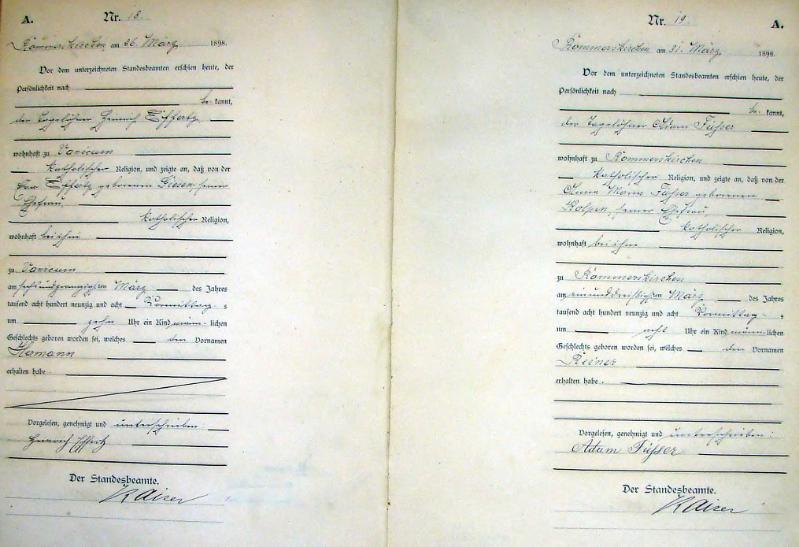 A.
Nr. 18.
Rommerskirchen am 26. März 1898.
Vor dem unterzeichneten Standesbeamten erschien heute, der
Persönlichkeit nach
be kannt,
der Tagelöhner Heinrich Effertz
wohnhaft zu Vanicum
katholischer Religion, und zeigte an, daß von der
Effertz geborenen Giesen, seiner
Ehefrau,
katholischer Religion,
wohnhaft bei ihm
zu Vanicum
am sechsundzwanzigsten März des Jahres
tausend acht hundert neunzig und acht Vormittag s
um zehn Uhr ein Kind männ lichen
Geschlechts geboren worden sei, welches den Vornamen
Hermann
erhalten habe
Vorgelesen, genehmigt und unterschrieben:
Heinrich Effertz
Der Standesbeamte.
Kaiser
Nr. 19.
A.
Rommerskirchen am 31. März 1898.
Vor dem unterzeichneten Standesbeamten erschien heute, der
Persönlichkeit nach
be kannt,
der Tagelöhner Adam Füsser
wohnhaft zu Rommerskirchen
katholischer Religion, und zeigte an, daß von der
Anna Maria Füsser geborenen
seiner Ehefrau,
katholischer Religion,
wohnhaft bei ihm
zu Rommerskirchen
am einunddreißigsten März des Jahres
tausend acht hundert neunzig und acht Vormittag s
um acht Uhr ein Kind männ lichen
Geschlechts geboren worden sei, welches den Vornamen
Reiner
erhalten habe.
Vorgelesen, genehmigt und unterschrieben:
Adam Füsser
Der Standesbeamte.
Kaiser